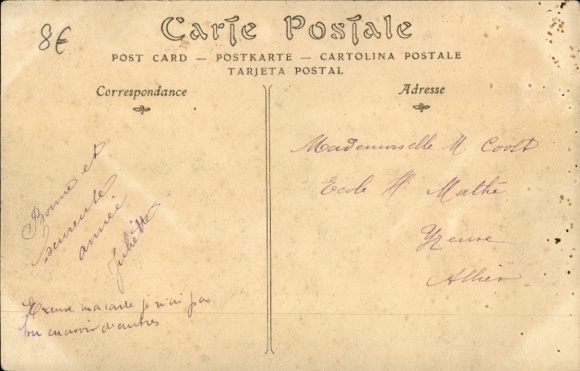 8€
Carte Postale
POST CARD — POSTKARTE — CARTOLINA POSTALE
TARJETA POSTAL
Correspondance
Adresse
Bonne et
heureuse
année
Juliette
Excuse ma carte je n'ai pas
pu en avoir d'autres
Mademoiselle M. Coost
Ecole St Mathé
Yzeure
Allier